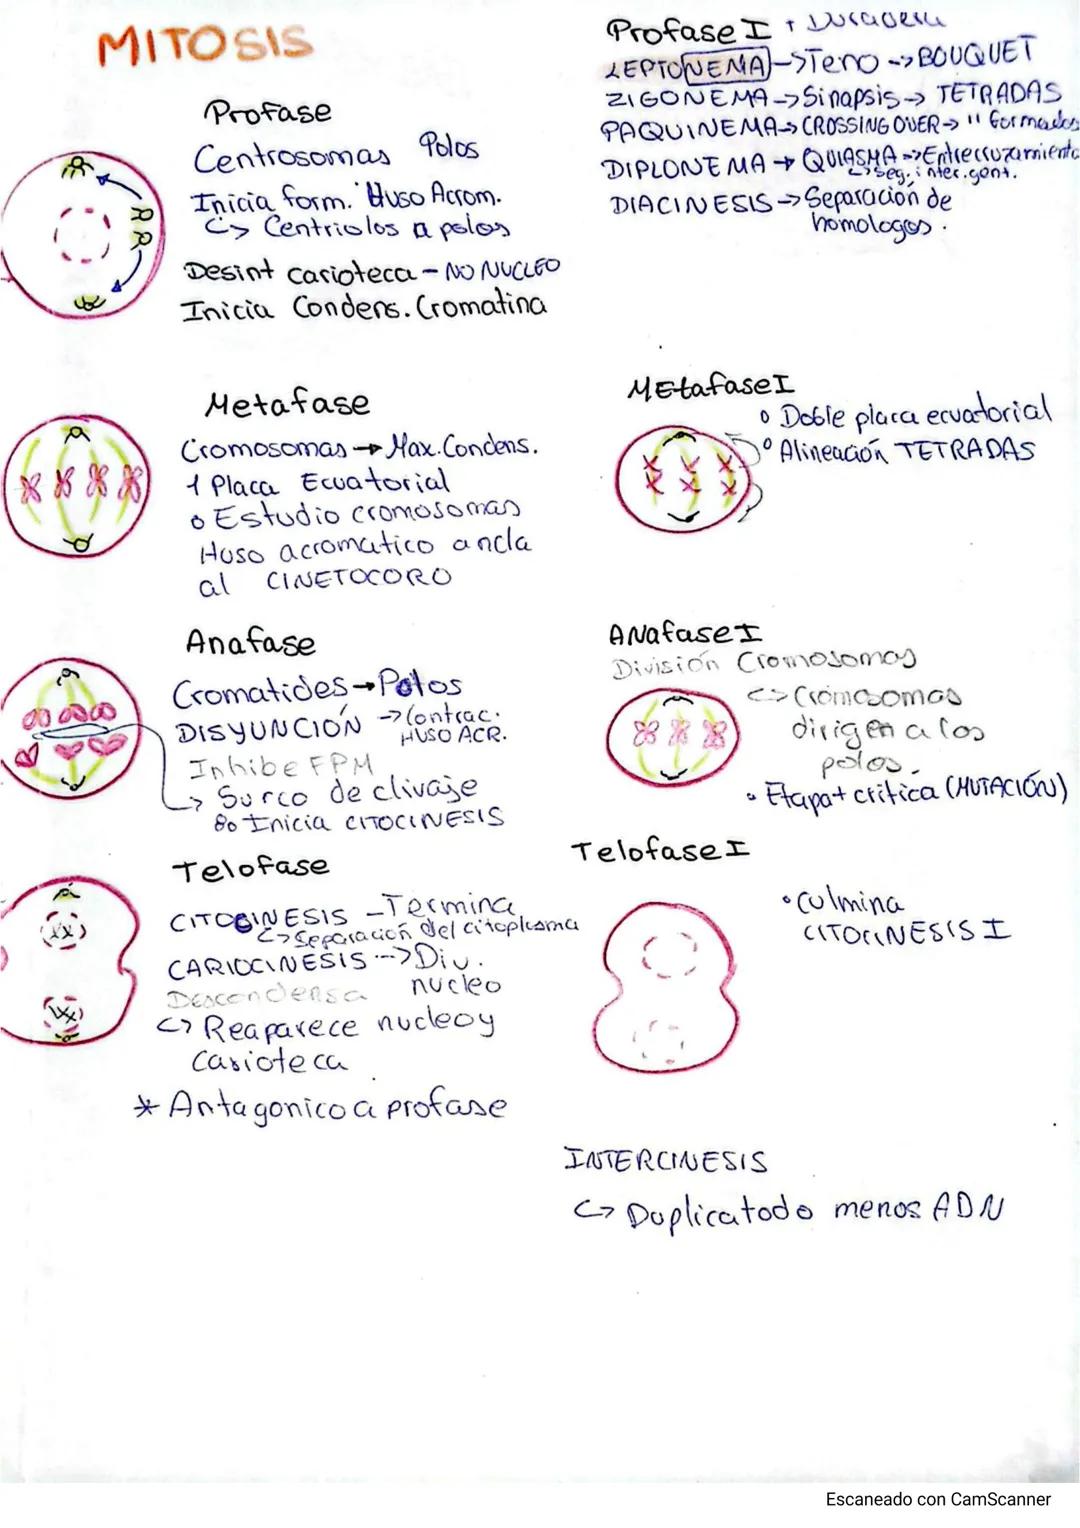 MITOSIS
Profase
Centrosomas Polos
Inicia form. Huso Acrom.
↳ Centriolos a polos
Desint carioteca - NO NUCLEO
Inicia Condens. Cromatina
Metafase
Cromosomas → Max. Condens.
1 Placa Ecuatorial
o Estudio cromosomas
Huso acromatico ancla
al CINETOCORO
Anafase
Cromatides → Polos
DISYUNCIÓN → Contrac. HUSO ACR.
Inhibe FPM
↳ Surco de clivaje
Inicia CITOCINESIS
Telofase
CITOCINESIS - Termina
↳ Separación del citoplasma
CARIOCINESIS --> Div. nucleo
Descondensa
↳ Reaparece nucleo y
Carioteca
* Antagonico a profase
Profase I + Duradera
LEPTONEMA -> Teno -> BOUQUET
ZIGONEMA -> Sinapsis -> TETRADAS
PAQUINEMA -> CROSSING OVER -> " formadas
DIPLONEMA → QUIASMA -> Entrecruzamiento
↳ Seg. inter. gent.
DIACINESIS -> Separación de
homologos.
METafase I
o Doble placa ecuatorial
o Alineación TETRADAS
ANafase I
División Cromosomas
↳ Cromosomas
dirigen a los
polos.
• Etapa + critica (MUTACIÓN)
Telofase I
• Culmina
CITOCINESIS I
INTERCINESIS
↳ Duplica todo menos ADN
Escaneado con CamScanner